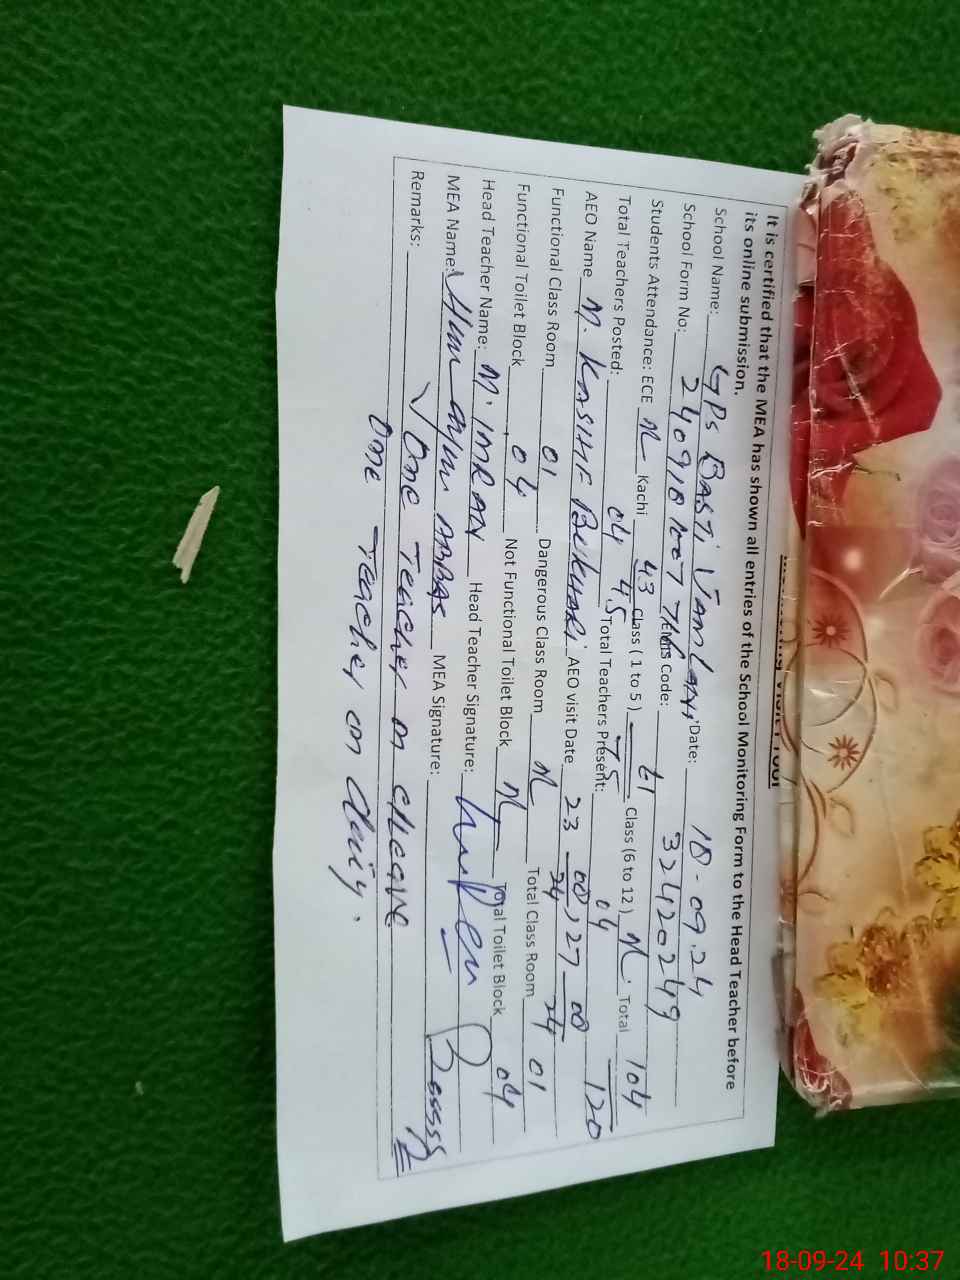 Monitoring Visit Proof
It is certified that the MEA has shown all entries of the School Monitoring Form to the Head Teacher before
its online submission.
School Name: GPS BASTI JAMLANI Date: 18-09.24
School Form No: 240918 EMIS Code: 32420249
Students Attendance: ECE N Kachi 43 Class ( 1 to 5 ) 61 Class (6 to 12) N. Total 104
45 75 120
Total Teachers Posted: 04 Total Teachers Present: 04
AEO Name M. KASHIF BUKHARI AEO visit Date 23 08 24, 27 08 24
Functional Class Room 01 Dangerous Class Room N Total Class Room 01
Functional Toilet Block 04 Not Functional Toilet Block N Total Toilet Block 04
Head Teacher Name: M. IMRAN Head Teacher Signature:
MEA Name: Humayun ABBAS MEA Signature:
Remarks: One Teacher on leave
One Teacher on duty.
18-09-24 10:37